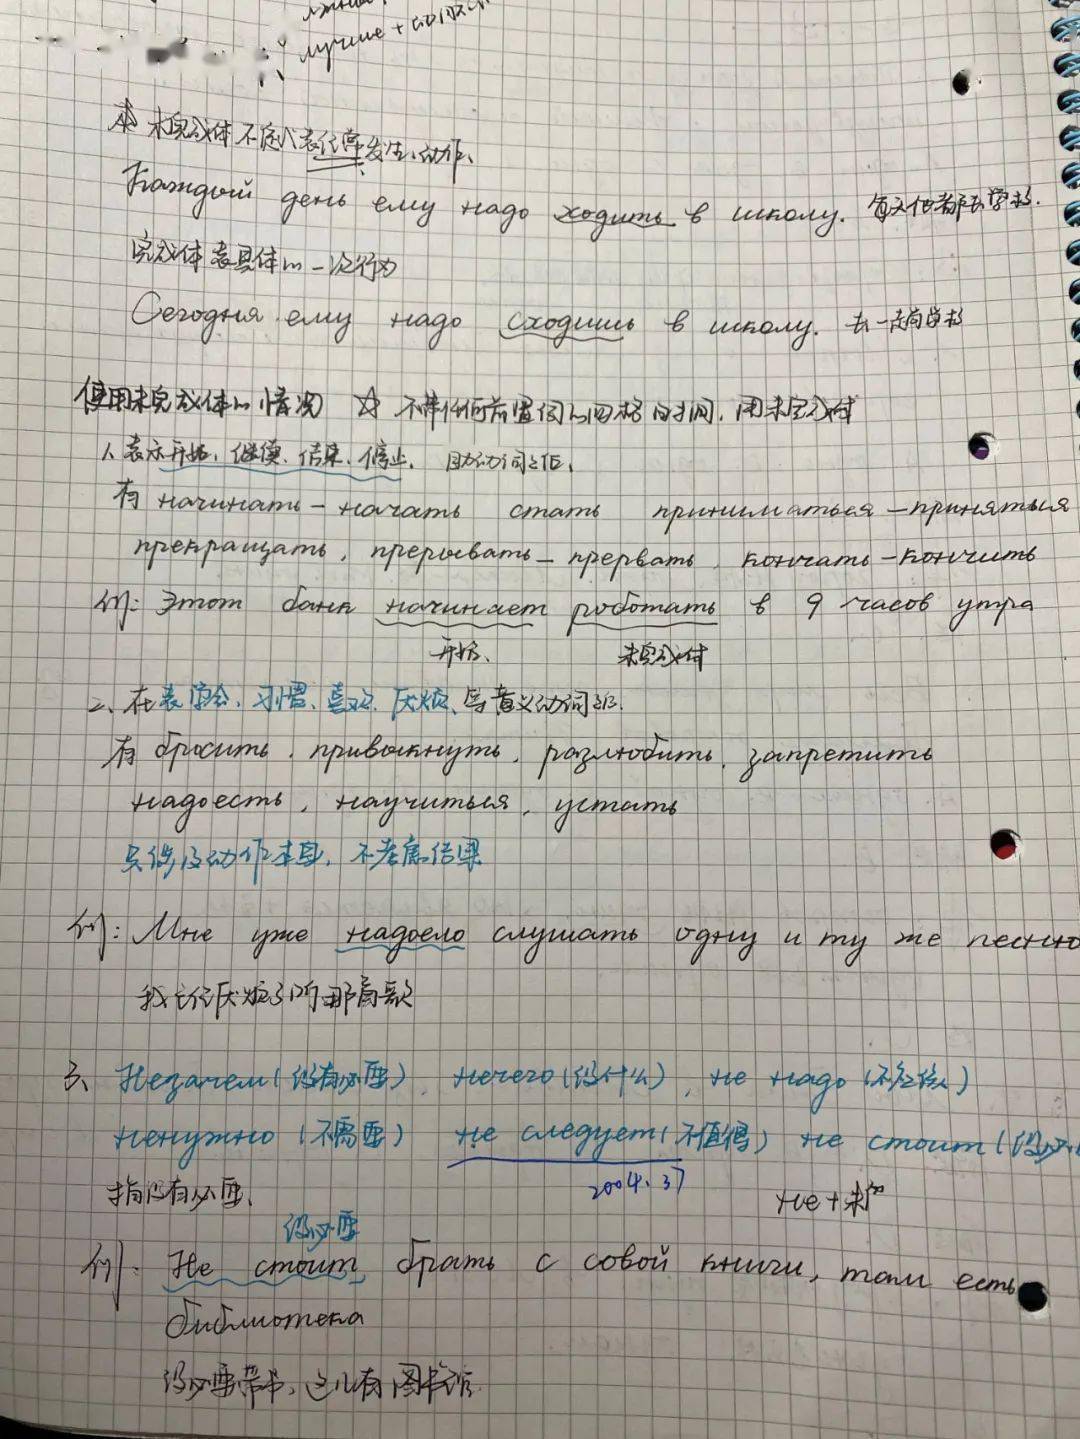 лучше +
未完成体不定式表经常发生的动作、
Каждый день ему надо ходить в школу. 每天他都去学校.
完成体表具体的一次行为
Сегодня ему надо сходишь в школу. 去一趟学校
使用未完成体的情况 ☆ 不带任何前置词的四格时间, 用未完成体
1、表示开始、继续、结束、停止. 助动词之后、
有 начинать – начать стать приниматься – приняться
прекращать, прерывать – прервать, кончать – кончить
例: Этот банк начинает роботать в 9 часов утра
开始、 未完成体
2、在表学会、习惯、喜欢、厌烦、等意义动词后.
有 бросить, привыкнуть, разлюбить, запретить
надоесть, научиться, устать
只涉及动作本身, 不考虑结果
例: Мне уже надоело слушать одну и ту же песню
我已经厌烦了听那首歌
3、 Незачем (没有必要), нечего (没什么), не надо (不应该)
ненужно (不需要) не следует (不值得) не стоит (没必
2004.37
指没有必要、 не + 未
没必要
例: Не стоит брать с совой книги, там есть
библиотека
没必要带书、这儿有图书馆